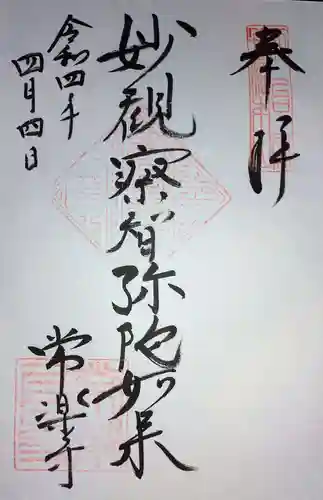 奉拝
妙観察智弥陀如来
令和四年
四月四日
常楽寺